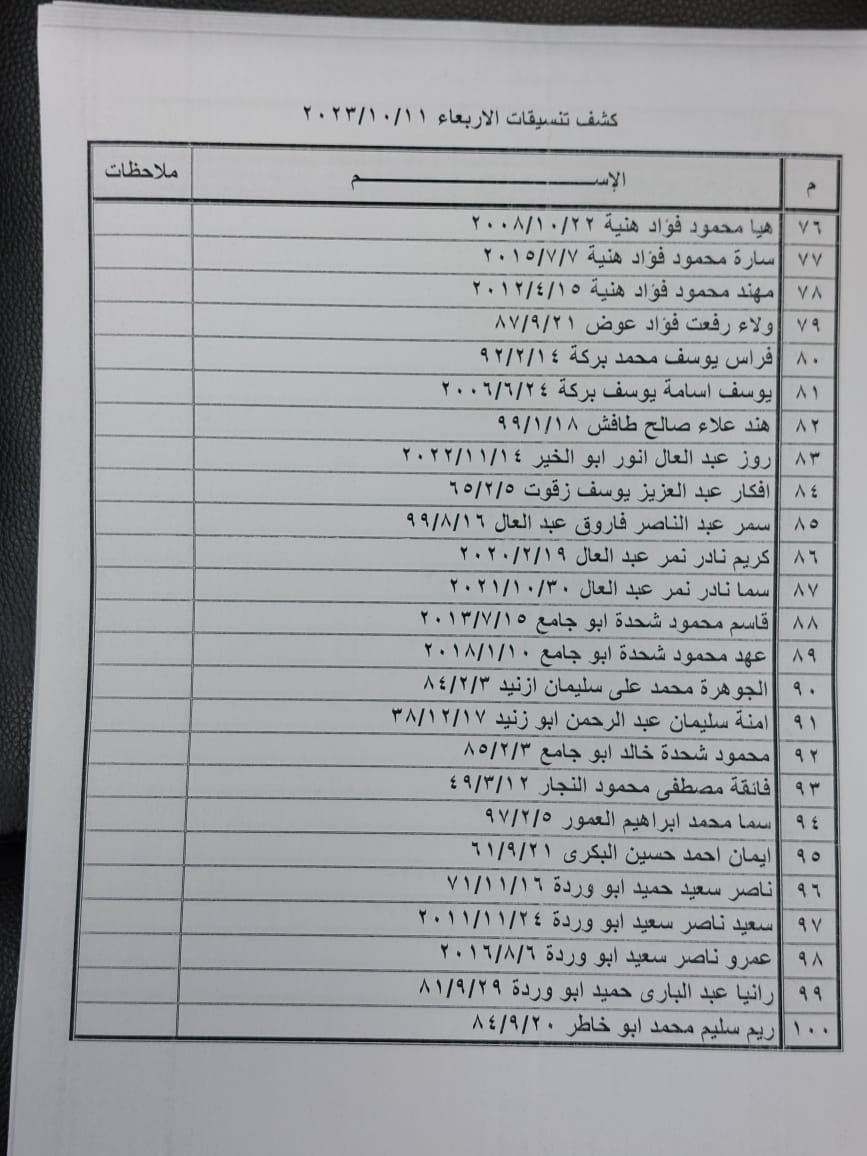 كشف تنسيقات الاربعاء ٢٠٢٣/١٠/١١
م الإســـــــــــــــــــــم ملاحظات
٧٦ هيا محمود فؤاد هنية ٢٠٠٨/١٠/٢٢
٧٧ سارة محمود فؤاد هنية ٢٠١٥/٧/٧
٧٨ مهند محمود فؤاد هنية ٢٠١٢/٤/١٥
٧٩ ولاء رفعت فؤاد عوض ٨٧/٩/٢١
٨٠ فراس يوسف محمد بركة ٩٢/٢/١٤
٨١ يوسف اسامة يوسف بركة ٢٠٠٦/٦/٢٤
٨٢ هند علاء صالح طافش ٩٩/١/١٨
٨٣ روز عبد العال انور ابو الخير ٢٠٢٢/١١/١٤
٨٤ افكار عبد العزيز يوسف زقوت ٦٥/٢/٥
٨٥ سمر عبد الناصر فاروق عبد العال ٩٩/٨/١٦
٨٦ كريم نادر نمر عبد العال ٢٠٢٠/٢/١٩
٨٧ سما نادر نمر عبد العال ٢٠٢١/١٠/٣٠
٨٨ قاسم محمود شحدة ابو جامع ٢٠١٣/٧/١٥
٨٩ عهد محمود شحدة ابو جامع ٢٠١٨/١/١٠
٩٠ الجوهرة محمد على سليمان ازنيد ٨٤/٢/٣
٩١ امنة سليمان عبد الرحمن ابو زنيد ٣٨/١٢/١٧
٩٢ محمود شحدة خالد ابو جامع ٨٥/٢/٣
٩٣ فائقة مصطفى محمود النجار ٤٩/٣/١٢
٩٤ سما محمد ابراهيم العمور ٩٧/٢/٥
٩٥ ايمان احمد حسين البكرى ٦١/٩/٢١
٩٦ ناصر سعيد حميد ابو وردة ٧١/١١/١٦
٩٧ سعيد ناصر سعيد ابو وردة ٢٠١١/١١/٢٤
٩٨ عمرو ناصر سعيد ابو وردة ٢٠١٦/٨/٦
٩٩ رانيا عبد البارى حميد ابو وردة ٨١/٩/٢٩
١٠٠ ريم سليم محمد ابو خاطر ٨٤/٩/٢٠